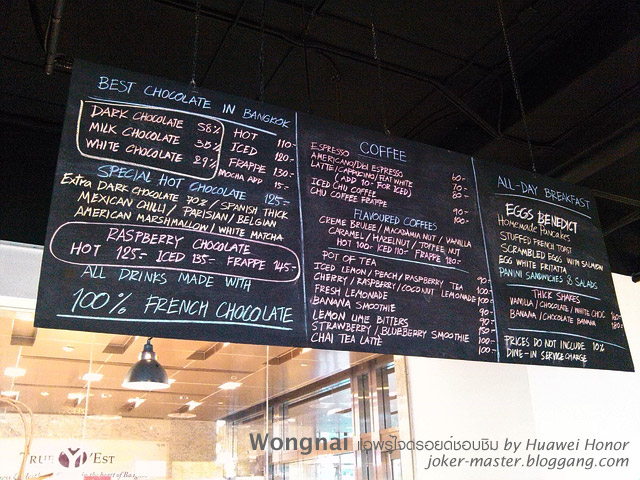 BEST CHOCOLATE IN BANGKOK
DARK CHOCOLATE 58%
MILK CHOCOLATE 38%
WHITE CHOCOLATE 29%
HOT 110-
ICED 120-
FRAPPE 130-
MOCHA APP 15-
SPECIAL HOT CHOCOLATE 125-
Extra DARK CHOCOLATE 70% / SPANISH THICK
MEXICAN CHILLI / PARISIAN / BELGIAN
AMERICAN MARSHMALLOW / WHITE MATCHA
RASPBERRY CHOCOLATE
HOT 125- ICED 135- FRAPPE 145-
ALL DRINKS MADE WITH
100% FRENCH CHOCOLATE
COFFEE
ESPRESSO 60-
AMERICANO/Dbl ESPRESSO 70-
LATTE/CAPPUCINO/FLAT WHITE 80-
(ADD 10- FOR ICED)
ICED CHU COFFEE 90-
CHU COFFEE FRAPPE 100-
FLAVOURED COFFEES
CREME BRULEE / MACADAMIA NUT / VANILLA
CARAMEL / HAZELNUT / TOFFEE NUT
HOT 100- ICED 110- FRAPPE 120-
POT OF TEA
ICED LEMON / PEACH / RASPBERRY TEA 90-
CHERRY / RASPBERRY / COCONUT LEMONADE 100-
FRESH LEMONADE 90-
BANANA SMOOTHIE 90-
LEMON LIME BITTERS
STRAWBERRY / BLUEBERRY SMOOTHIE 100-
CHAI TEA LATTE 100-
ALL-DAY BREAKFAST
EGGS BENEDICT
Homemade Pancakes
STUFFED FRENCH TOAST
SCRAMBLED EGGS WITH SALMON
EGG WHITE FRITATTA
PANINI SANDWICHES & SALADS
THICK SHAKES
VANILLA / CHOCOLATE / WHITE CHOC
BANANA / CHOCOLATE BANANA 180-
PRICES DO NOT INCLUDE 10%
DINE-IN SERVICE CHARGE
TRUE YOU WEST
in the heart of
Wongnai แอพรูไจดรอยด์ชอบชิม by Huawei Honor
joker-master.bloggang.com